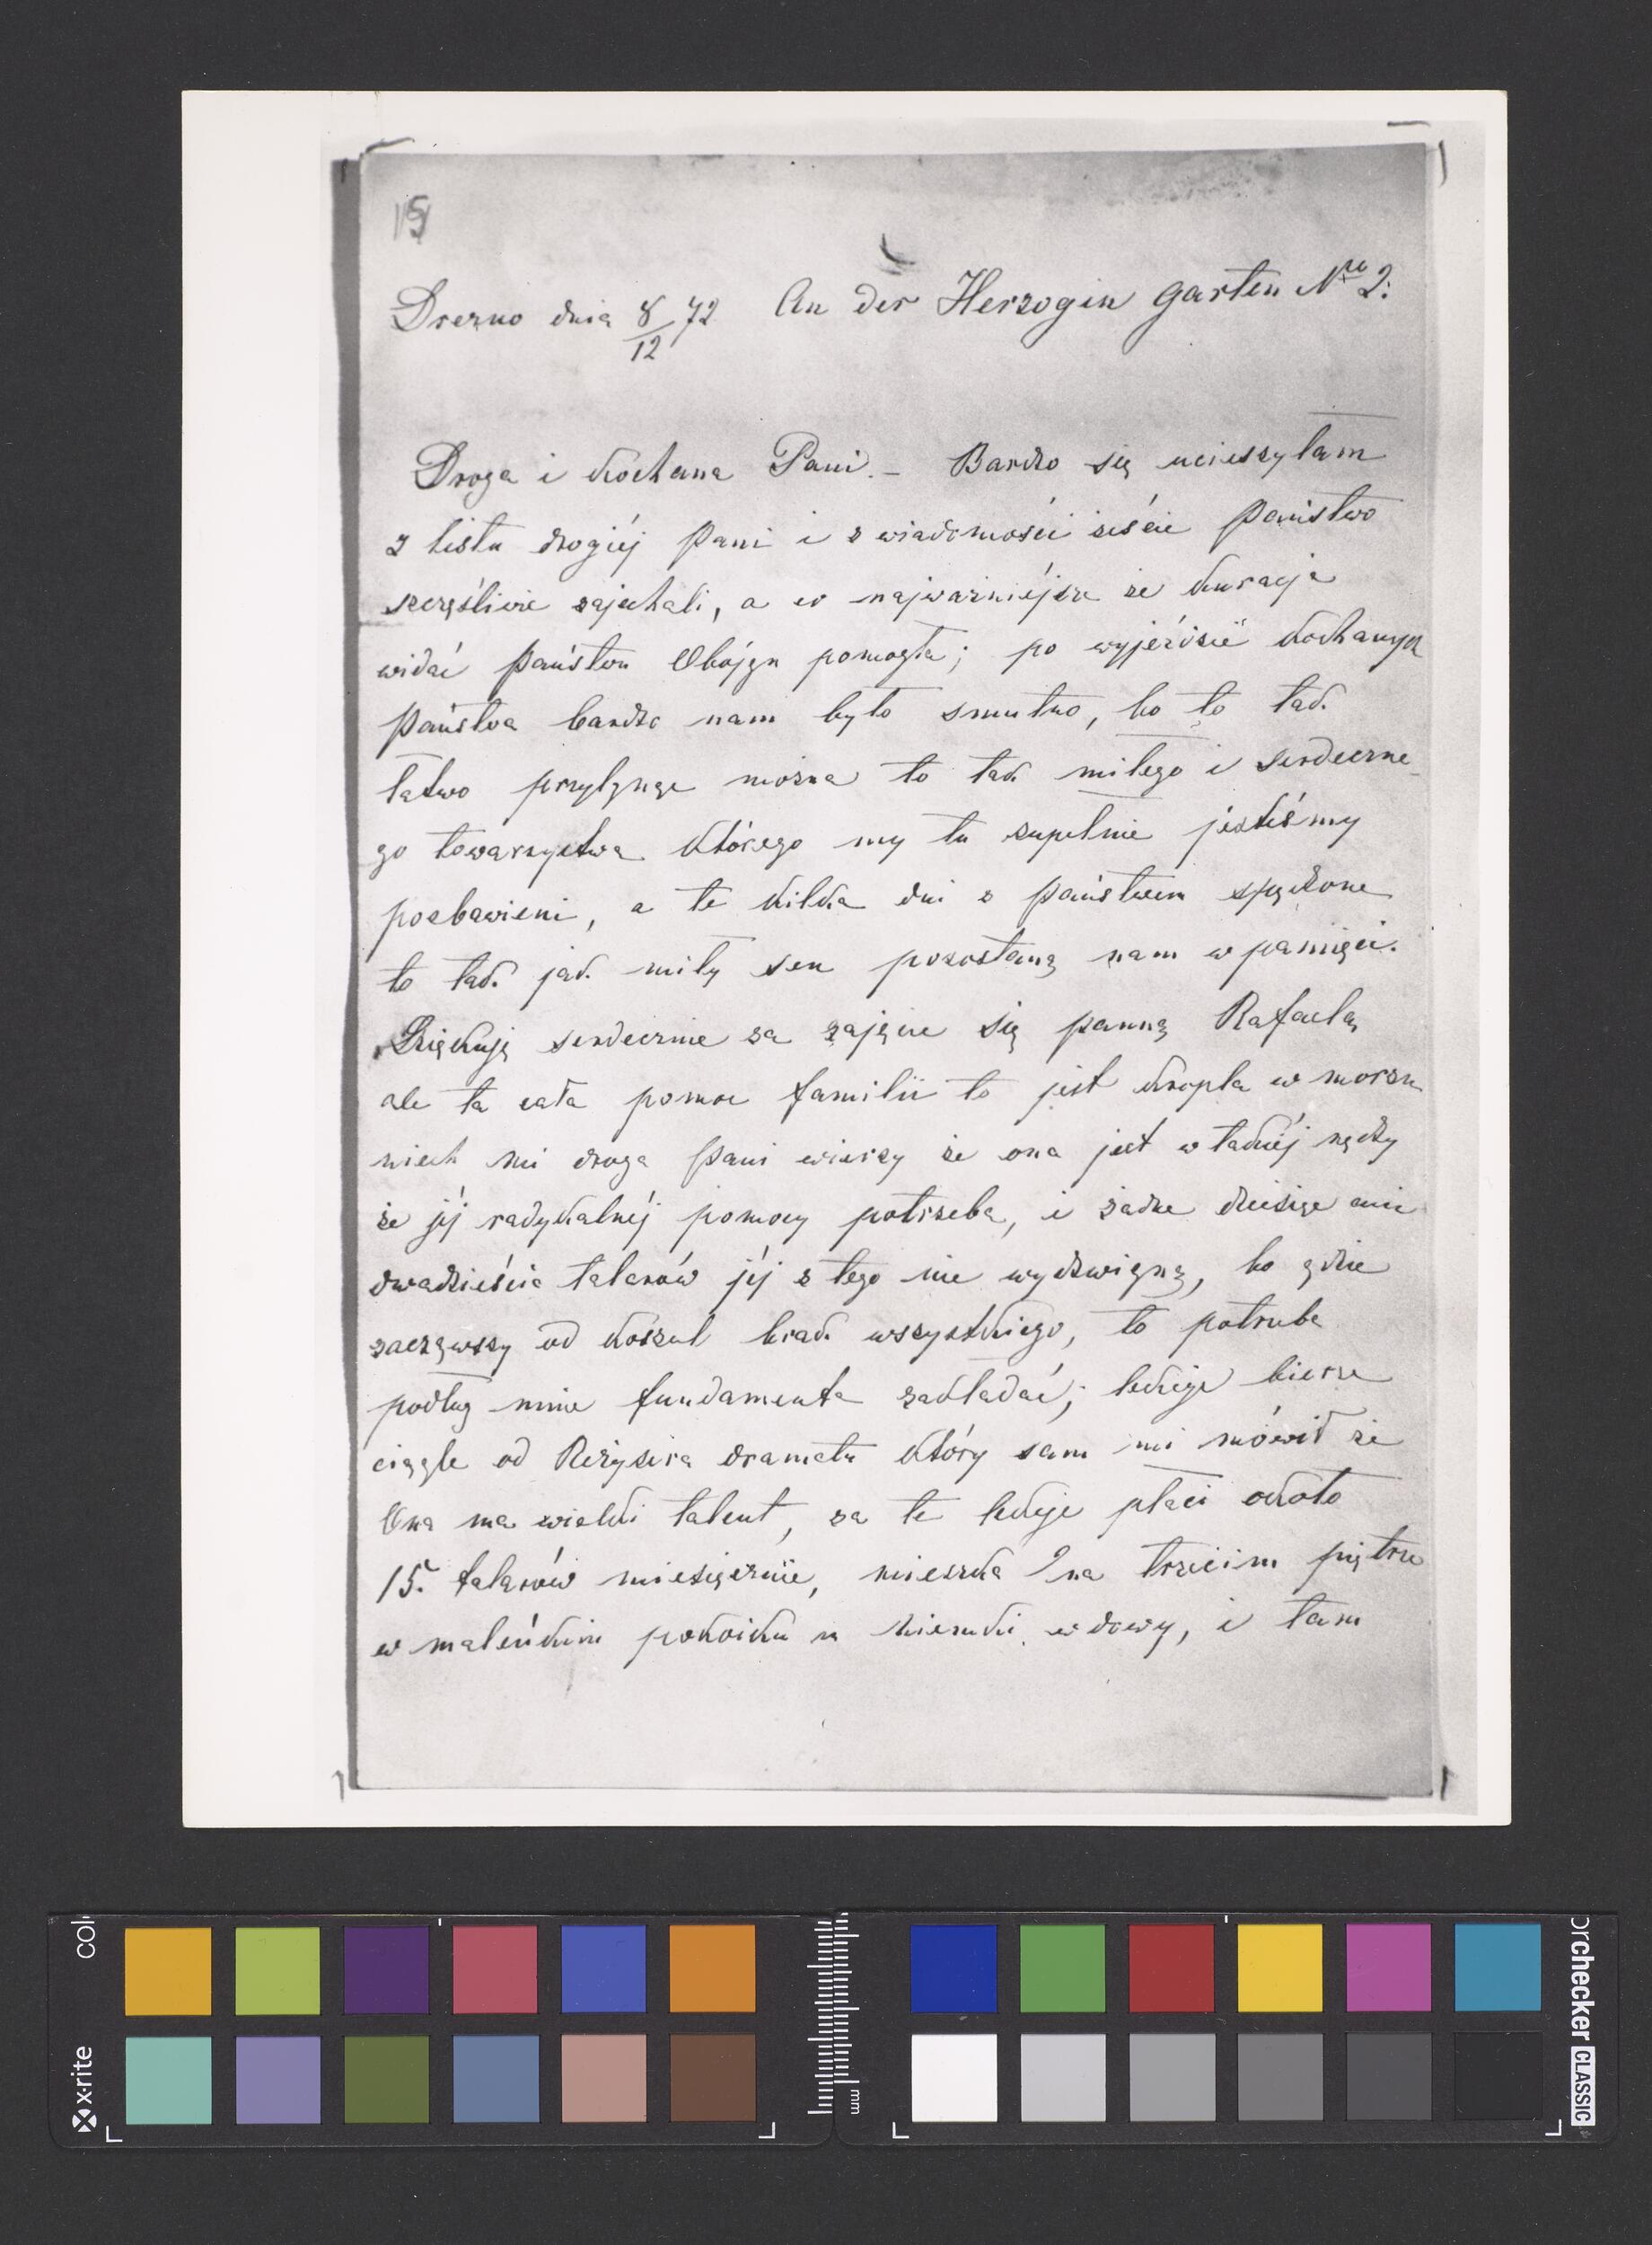 15
Drezno dnia 8/12 72 An der Herzogin Garten Nro 2.
Droga i kochana Pani. – Bardzo się ucieszyłam
z listu drogiéj Pani i z wiadomości żeście Państwo
szczęśliwie zajechali, a co najważniéjsze że kuracja
widać Państwu Obójgu pomogła; po wyjeździe kochanych
Państwa bardzo nam było smutno, bo to tak
łatwo przylgnąc można to tak miłego i serdeczne-
go towarzystwa którego my tu zupełnie jesteśmy
pozbawieni, a te kilka dni z Państwem spędzone
to tak jak miły sen pozostaną nam w pamięci.
Dziękuję serdecznie za zajęcie się panną Rafaelą
ale ta cała pomoc familii to jest kropla w morzu
niech mi droga Pani wierzy że ona jest w takiéj nędzy
że jéj radykalnéj pomocy potrzeba, i żadne dziesięc ani
dwadzieścia talarów jéj z tego nie wydzwigną, bo gdzie
zacząwszy od koszul brak wszystkiego, to potrzeba
podług mnie fundamenta zakładać; lekcje bierze
ciągle od Reżysera dramatu który sam mi mówił że
Ona ma wielki talent, za te lekcje płaci około
15. talarów miesięcznie, mieszka na trzeciem piętrze
w maleńkim pokoiku u wdowy, i tam